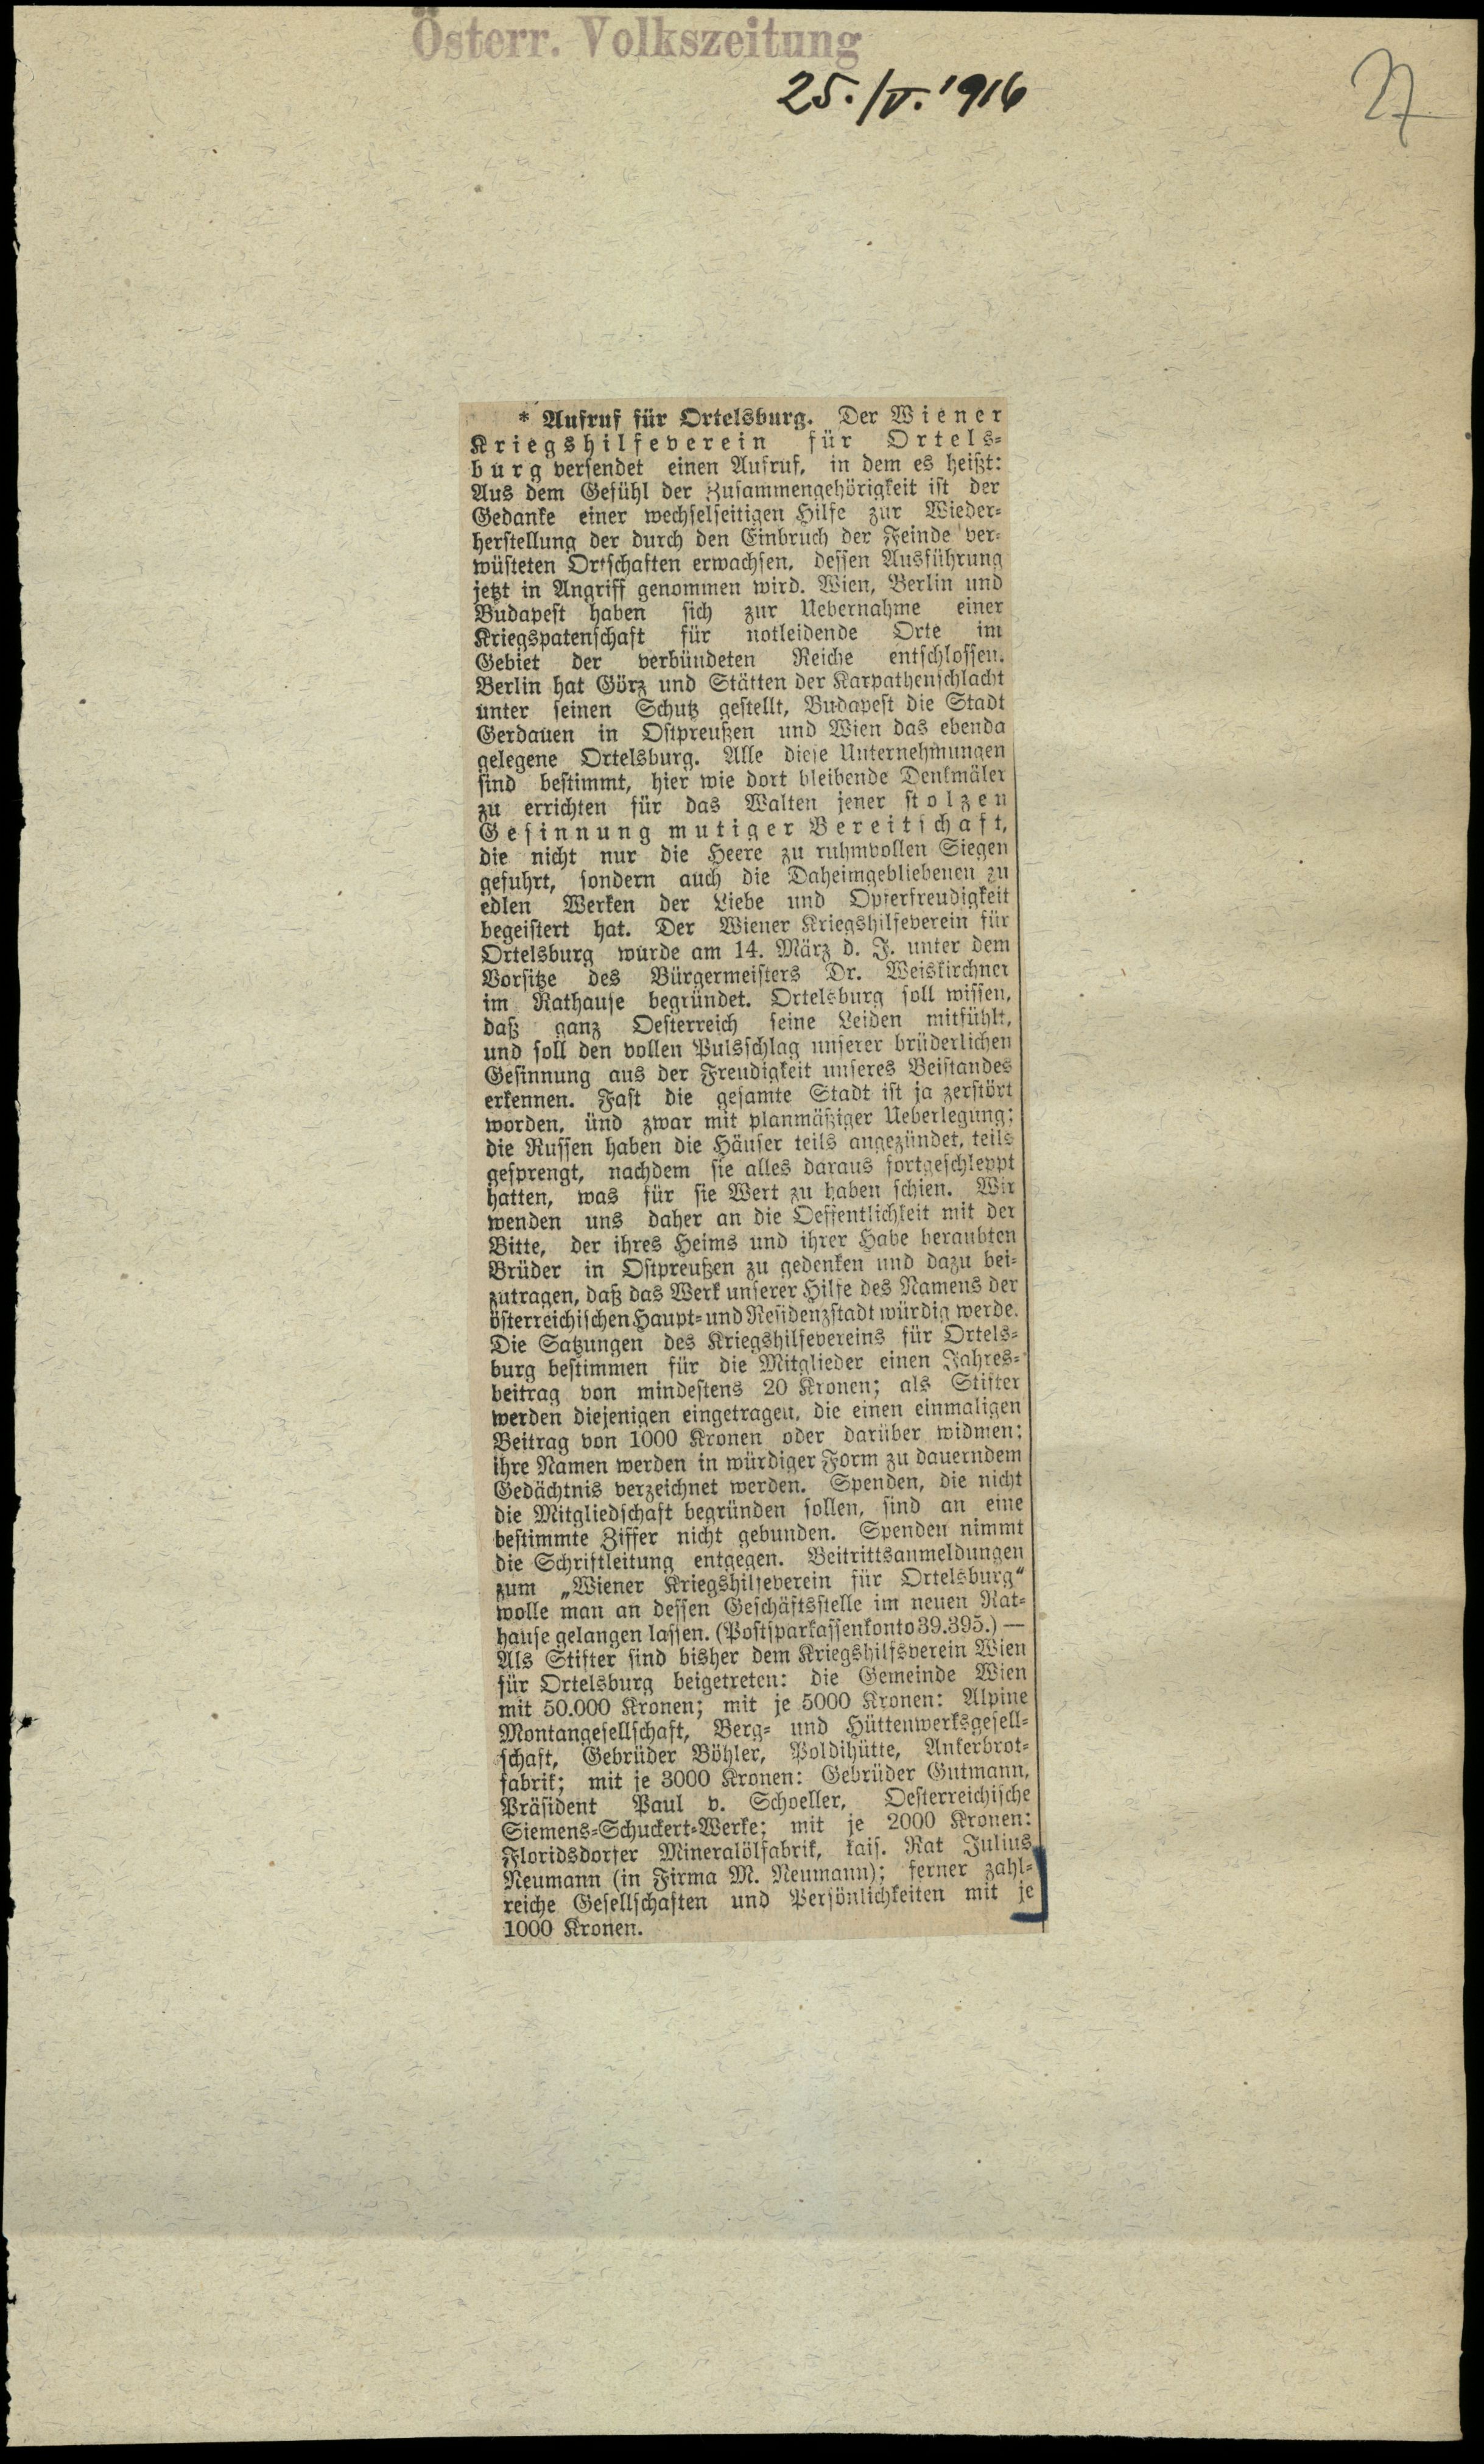 Österr. Volkszeitung
25./V. 1916
27
* Aufruf für Ortelsburg. Der Wiener
Kriegshilfeverein für Ortels-
burg versendet einen Aufruf, in dem es heißt:
Aus dem Gefühl der Zusammengehörigkeit ist der
Gedanke einer wechselseitigen Hilfe zur Wieder-
herstellung der durch den Einbruch der Feinde ver-
wüsteten Ortschaften erwachsen, dessen Ausführung
jetzt in Angriff genommen wird. Wien, Berlin und
Budapest haben sich zur Uebernahme einer
Kriegspatenschaft für notleidende Orte im
Gebiet der verbündeten Reiche entschlossen.
Berlin hat Görz und Stätten der Karpathenschlacht
unter seinen Schutz gestellt, Budapest die Stadt
Gerdauen in Ostpreußen und Wien das ebenda
gelegene Ortelsburg. Alle diese Unternehmungen
sind bestimmt, hier wie dort bleibende Denkmäler
zu errichten für das Walten jener stolzen
Gesinnung mutiger Bereitschaft,
die nicht nur die Heere zu ruhmvollen Siegen
geführt, sondern auch die Daheimgebliebenen zu
edlen Werken der Liebe und Opferfreudigkeit
begeistert hat. Der Wiener Kriegshilfeverein für
Ortelsburg wurde am 14. März d. J. unter dem
Vorsitze des Bürgermeisters Dr. Weiskirchner
im Rathause begründet. Ortelsburg soll wissen,
daß ganz Oesterreich seine Leiden mitfühlt,
und soll den vollen Pulsschlag unserer brüderlichen
Gesinnung aus der Freudigkeit unseres Beistandes
erkennen. Fast die gesamte Stadt ist ja zerstört
worden, ünd zwar mit planmäßiger Ueberlegung;
die Russen haben die Häuser teils angezündet, teils
gesprengt, nachdem sie alles daraus fortgeschleppt
hatten, was für sie Wert zu haben schien. Wir
wenden uns daher an die Oeffentlichkeit mit der
Bitte, der ihres Heims und ihrer Habe beraubten
Brüder in Ostpreußen zu gedenken und dazu bei-
zutragen, daß das Werk unserer Hilfe des Namens der
österreichischen Haupt- und Residenzstadt würdig werde.
Die Satzungen des Kriegshilfevereins für Ortels-
burg bestimmen für die Mitglieder einen Jahres-
beitrag von mindestens 20 Kronen; als Stifter
werden diejenigen eingetragen, die einen einmaligen
Beitrag von 1000 Kronen oder darüber widmen;
ihre Namen werden in würdiger Form zu dauerndem
Gedächtnis verzeichnet werden. Spenden, die nicht
die Mitgliedschaft begründen sollen, sind an eine
bestimmte Ziffer nicht gebunden. Spenden nimmt
die Schriftleitung entgegen. Beitrittsanmeldungen
zum „Wiener Kriegshilfeverein für Ortelsburg“
wolle man an dessen Geschäftsstelle im neuen Rat-
hause gelangen lassen. (Postsparkassenkonto 39.395.) —
Als Stifter sind bisher dem Kriegshilfsverein Wien
für Ortelsburg beigetreten: die Gemeinde Wien
mit 50.000 Kronen; mit je 5000 Kronen: Alpine
Montangesellschaft, Berg- und Hüttenwerksgesell-
schaft, Gebrüder Böhler, Poldihütte, Ankerbrot-
fabrik; mit je 3000 Kronen: Gebrüder Gutmann,
Präsident Paul v. Schoeller, Oesterreichische
Siemens-Schuckert-Werke; mit je 2000 Kronen:
Floridsdorfer Mineralölfabrik, kais. Rat Julius
Neumann (in Firma M. Neumann); ferner zahl-
reiche Gesellschaften und Persönlichkeiten mit je
1000 Kronen.